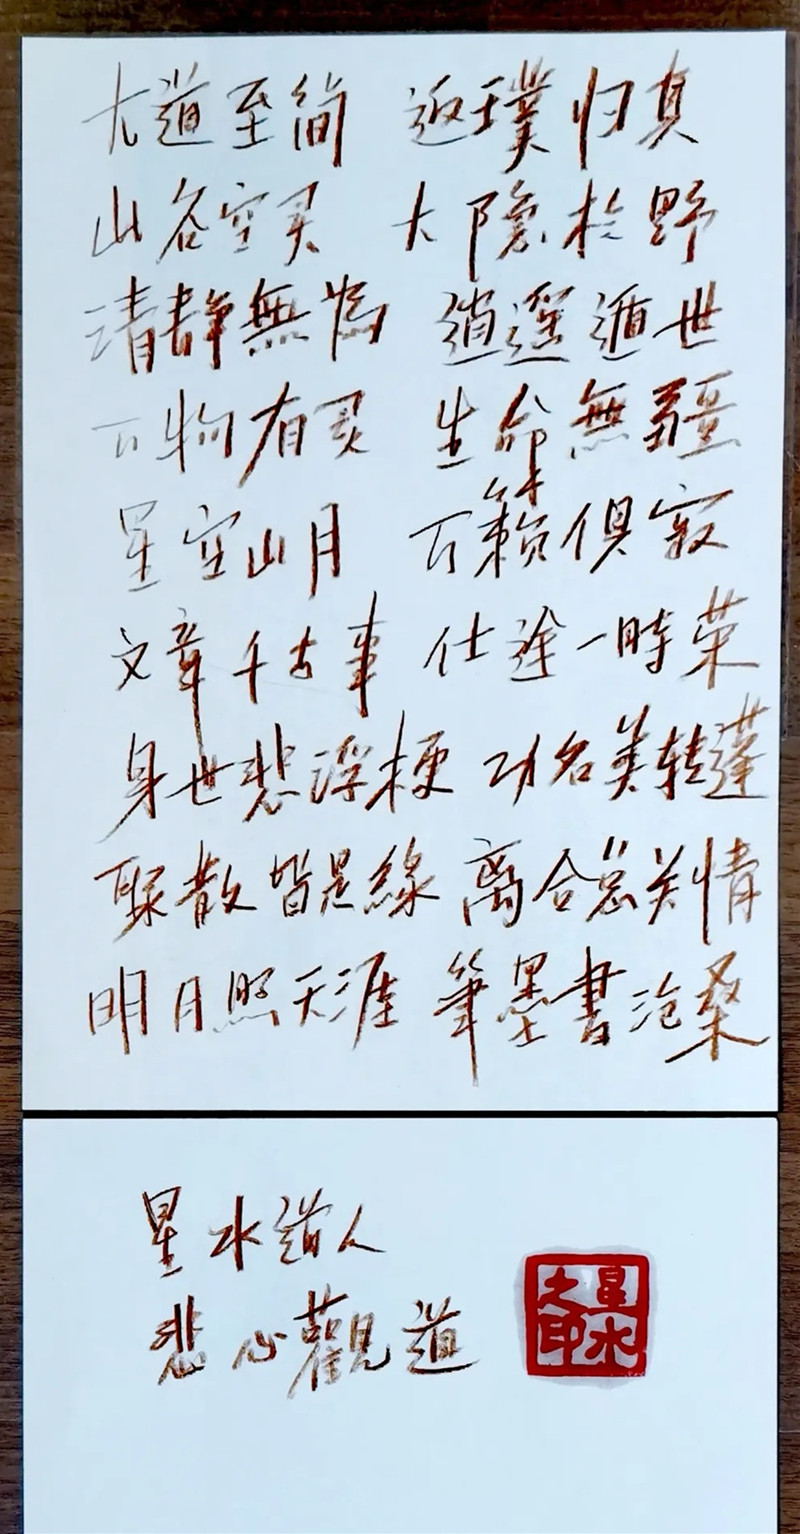 大道至简 返璞归真
山谷空灵 大隐於野
清静無為 逍遥遁世
万物有灵 生命無疆
星空山月 万籁俱寂
文章千古事 仕途一時荣
身世悲浮梗 功名类转蓬
聚散皆是緣 离合总关情
明月照天涯 筆墨書沧桑
星水道人
悲心觀道
星水之印